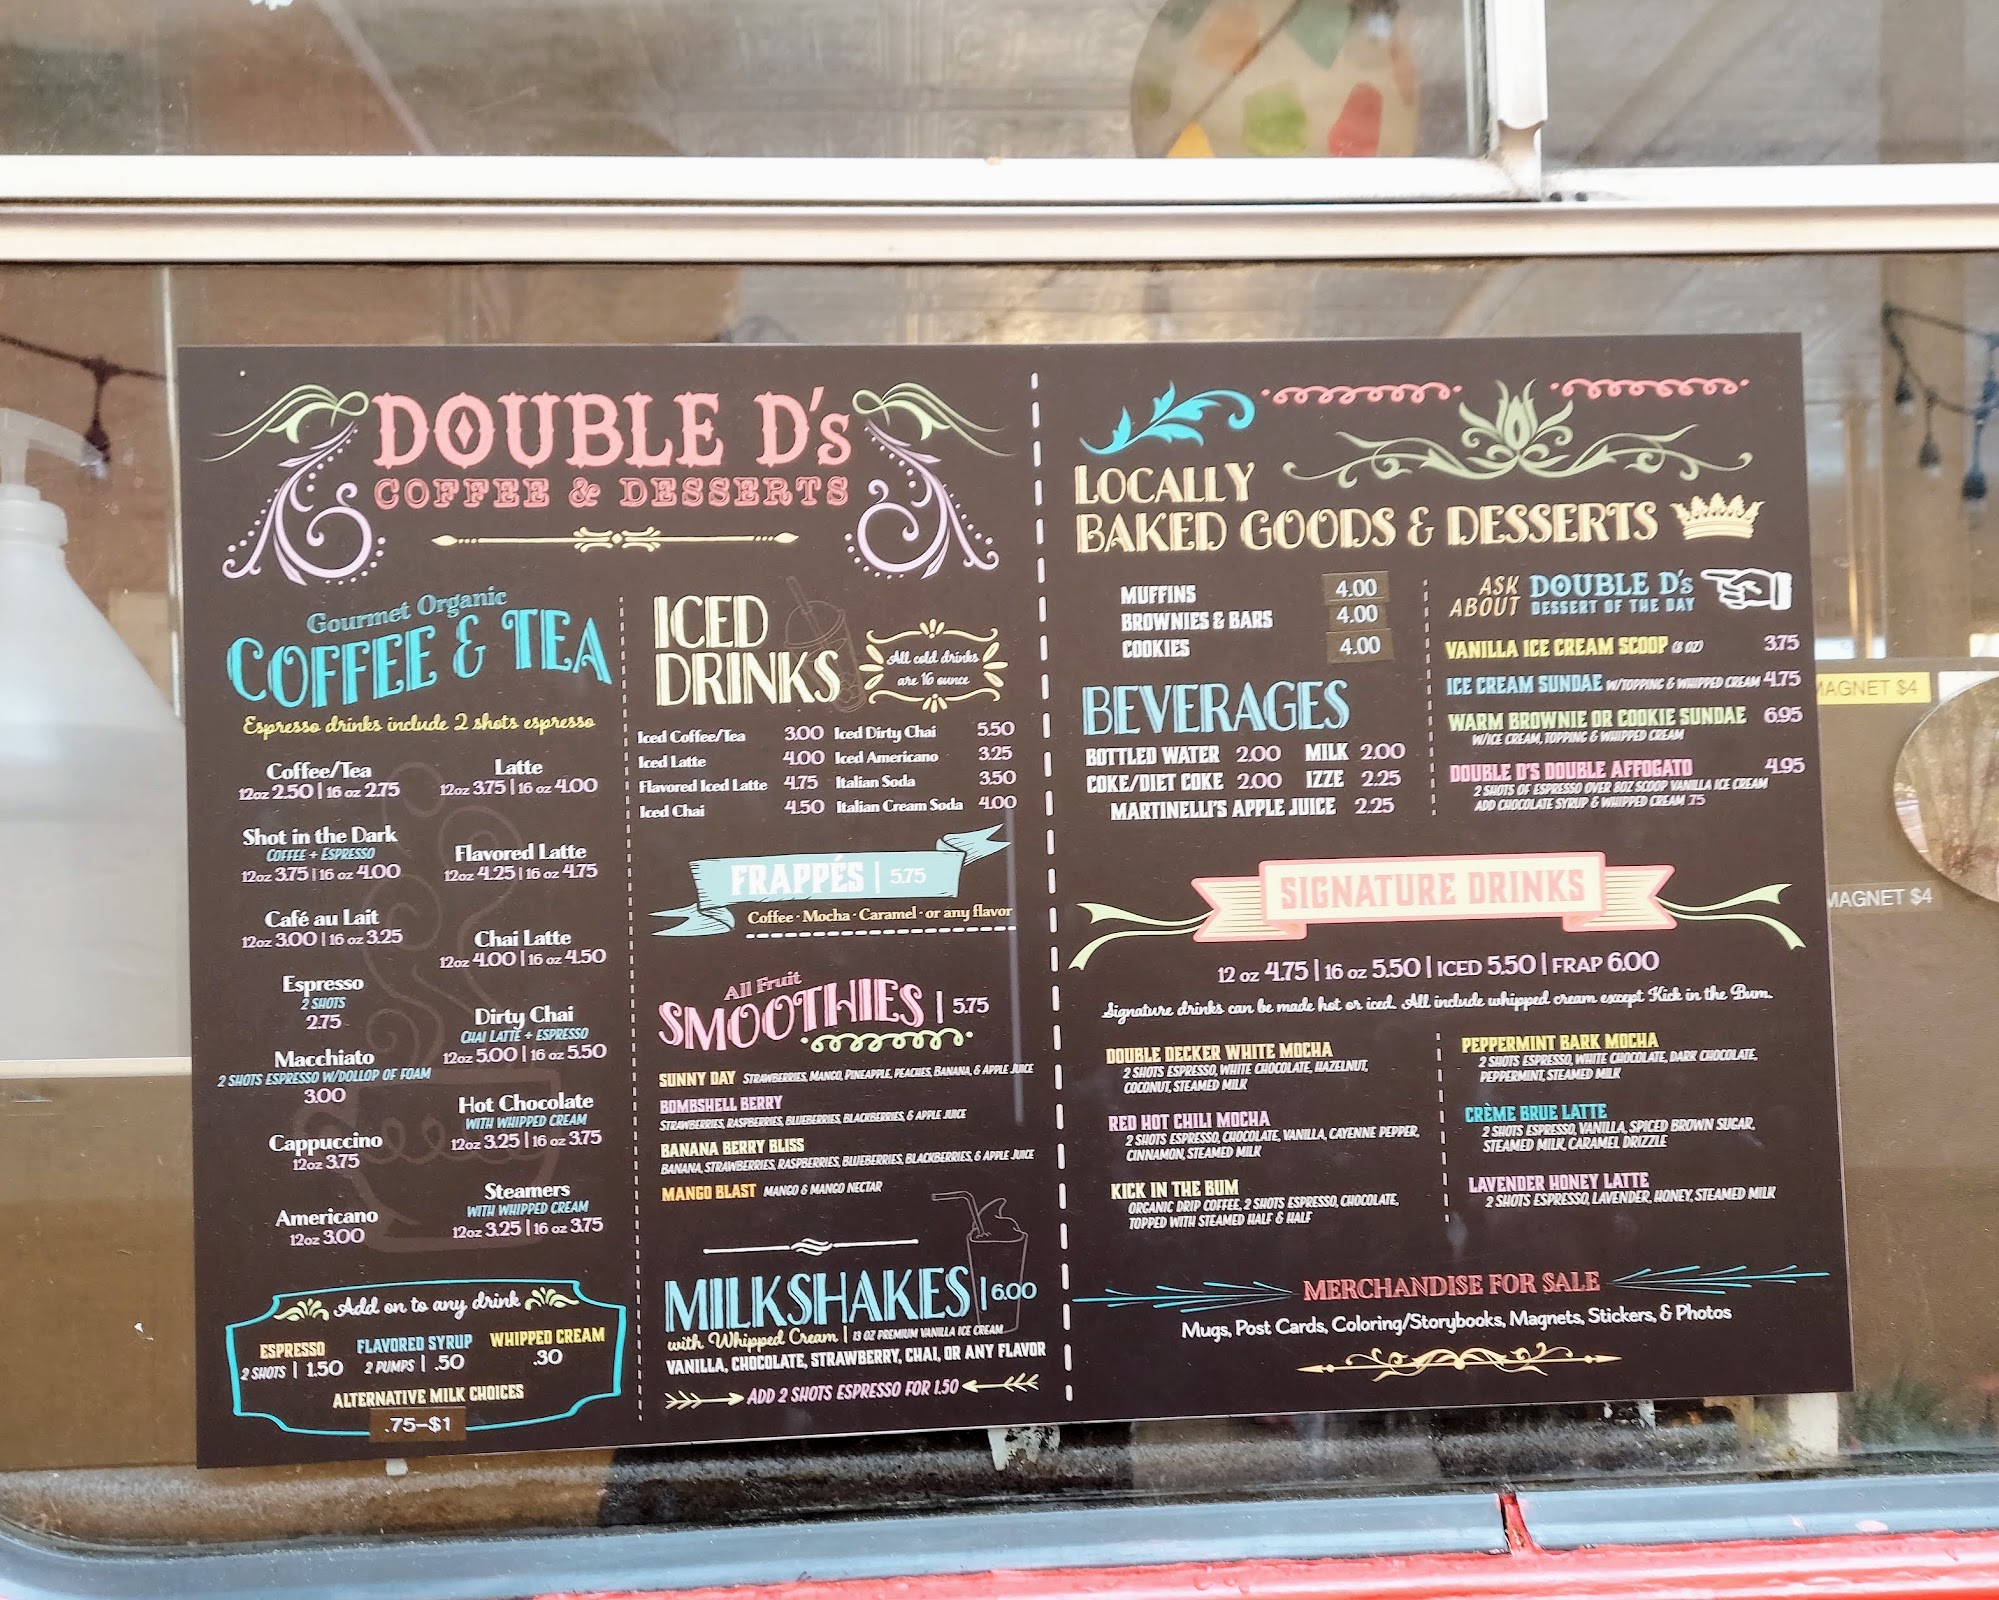 DOUBLE D's
COFFEE & DESSERTS
Gourmet Organic
COFFEE & TEA
Espresso drinks include 2 shots espresso
Coffee/Tea
12oz 2.50 | 16 oz 2.75
Shot in the Dark
COFFEE + ESPRESSO
12oz 3.75 | 16 oz 4.00
Café au Lait
12oz 3.00 | 16 oz 3.25
Espresso
2 SHOTS
2.75
Macchiato
2 SHOTS ESPRESSO W/DOLLOP OF FOAM
3.00
Cappuccino
12oz 3.75
Americano
12oz 3.00
Latte
12oz 3.75 | 16 oz 4.00
Flavored Latte
12oz 4.25 | 16 oz 4.75
Chai Latte
12oz 4.00 | 16 oz 4.50
Dirty Chai
CHAI LATTE + ESPRESSO
12oz 5.00 | 16 oz 5.50
Hot Chocolate
WITH WHIPPED CREAM
12oz 3.25 | 16 oz 3.75
Steamers
WITH WHIPPED CREAM
12oz 3.25 | 16 oz 3.75
Add on to any drink
ESPRESSO
2 SHOTS | 1.50
FLAVORED SYRUP
2 PUMPS | .50
WHIPPED CREAM
.30
ALTERNATIVE MILK CHOICES
.75-$1
ICED
DRINKS
All cold drinks
are 16 ounce
Iced Coffee/Tea 3.00
Iced Latte 4.00
Flavored Iced Latte 4.75
Iced Chai 4.50
Iced Dirty Chai 5.50
Iced Americano 3.25
Italian Soda 3.50
Italian Cream Soda 4.00
FRAPPÉS | 5.75
Coffee · Mocha · Caramel · or any flavor
All Fruit
SMOOTHIES | 5.75
SUNNY DAY STRAWBERRIES, MANGO, PINEAPPLE, PEACHES, BANANA, & APPLE JUICE
BOMBSHELL BERRY
STRAWBERRIES, RASPBERRIES, BLUEBERRIES, BLACKBERRIES, & APPLE JUICE
BANANA BERRY BLISS
BANANA, STRAWBERRIES, RASPBERRIES, BLUEBERRIES, BLACKBERRIES, & APPLE JUICE
MANGO BLAST MANGO & MANGO NECTAR
MILKSHAKES | 6.00
with Whipped Cream | 13 OZ PREMIUM VANILLA ICE CREAM
VANILLA, CHOCOLATE, STRAWBERRY, CHAI, OR ANY FLAVOR
ADD 2 SHOTS ESPRESSO FOR 1.50
LOCALLY
BAKED GOODS & DESSERTS
MUFFINS 4.00
BROWNIES & BARS 4.00
COOKIES 4.00
BEVERAGES
BOTTLED WATER 2.00 MILK 2.00
COKE/DIET COKE 2.00 IZZE 2.25
MARTINELLI'S APPLE JUICE 2.25
ASK
ABOUT
DOUBLE D's
DESSERT OF THE DAY
VANILLA ICE CREAM SCOOP (8 OZ) 3.75
ICE CREAM SUNDAE W/TOPPING & WHIPPED CREAM 4.75
WARM BROWNIE OR COOKIE SUNDAE 6.95
W/ICE CREAM, TOPPING & WHIPPED CREAM
DOUBLE D'S DOUBLE AFFOGATO 4.95
2 SHOTS OF ESPRESSO OVER 8OZ SCOOP VANILLA ICE CREAM
ADD CHOCOLATE SYRUP & WHIPPED CREAM .75
SIGNATURE DRINKS
12 oz 4.75 | 16 oz 5.50 | ICED 5.50 | FRAP 6.00
Signature drinks can be made hot or iced. All include whipped cream except Kick in the Bum.
DOUBLE DECKER WHITE MOCHA
2 SHOTS ESPRESSO, WHITE CHOCOLATE, HAZELNUT,
COCONUT, STEAMED MILK
RED HOT CHILI MOCHA
2 SHOTS ESPRESSO, CHOCOLATE, VANILLA, CAYENNE PEPPER,
CINNAMON, STEAMED MILK
KICK IN THE BUM
ORGANIC DRIP COFFEE, 2 SHOTS ESPRESSO, CHOCOLATE,
TOPPED WITH STEAMED HALF & HALF
PEPPERMINT BARK MOCHA
2 SHOTS ESPRESSO, WHITE CHOCOLATE, DARK CHOCOLATE,
PEPPERMINT, STEAMED MILK
CRÈME BRUE LATTE
2 SHOTS ESPRESSO, VANILLA, SPICED BROWN SUGAR,
STEAMED MILK, CARAMEL DRIZZLE
LAVENDER HONEY LATTE
2 SHOTS ESPRESSO, LAVENDER, HONEY, STEAMED MILK
MERCHANDISE FOR SALE
Mugs, Post Cards, Coloring/Storybooks, Magnets, Stickers, & Photos
MAGNET $4
MAGNET $4